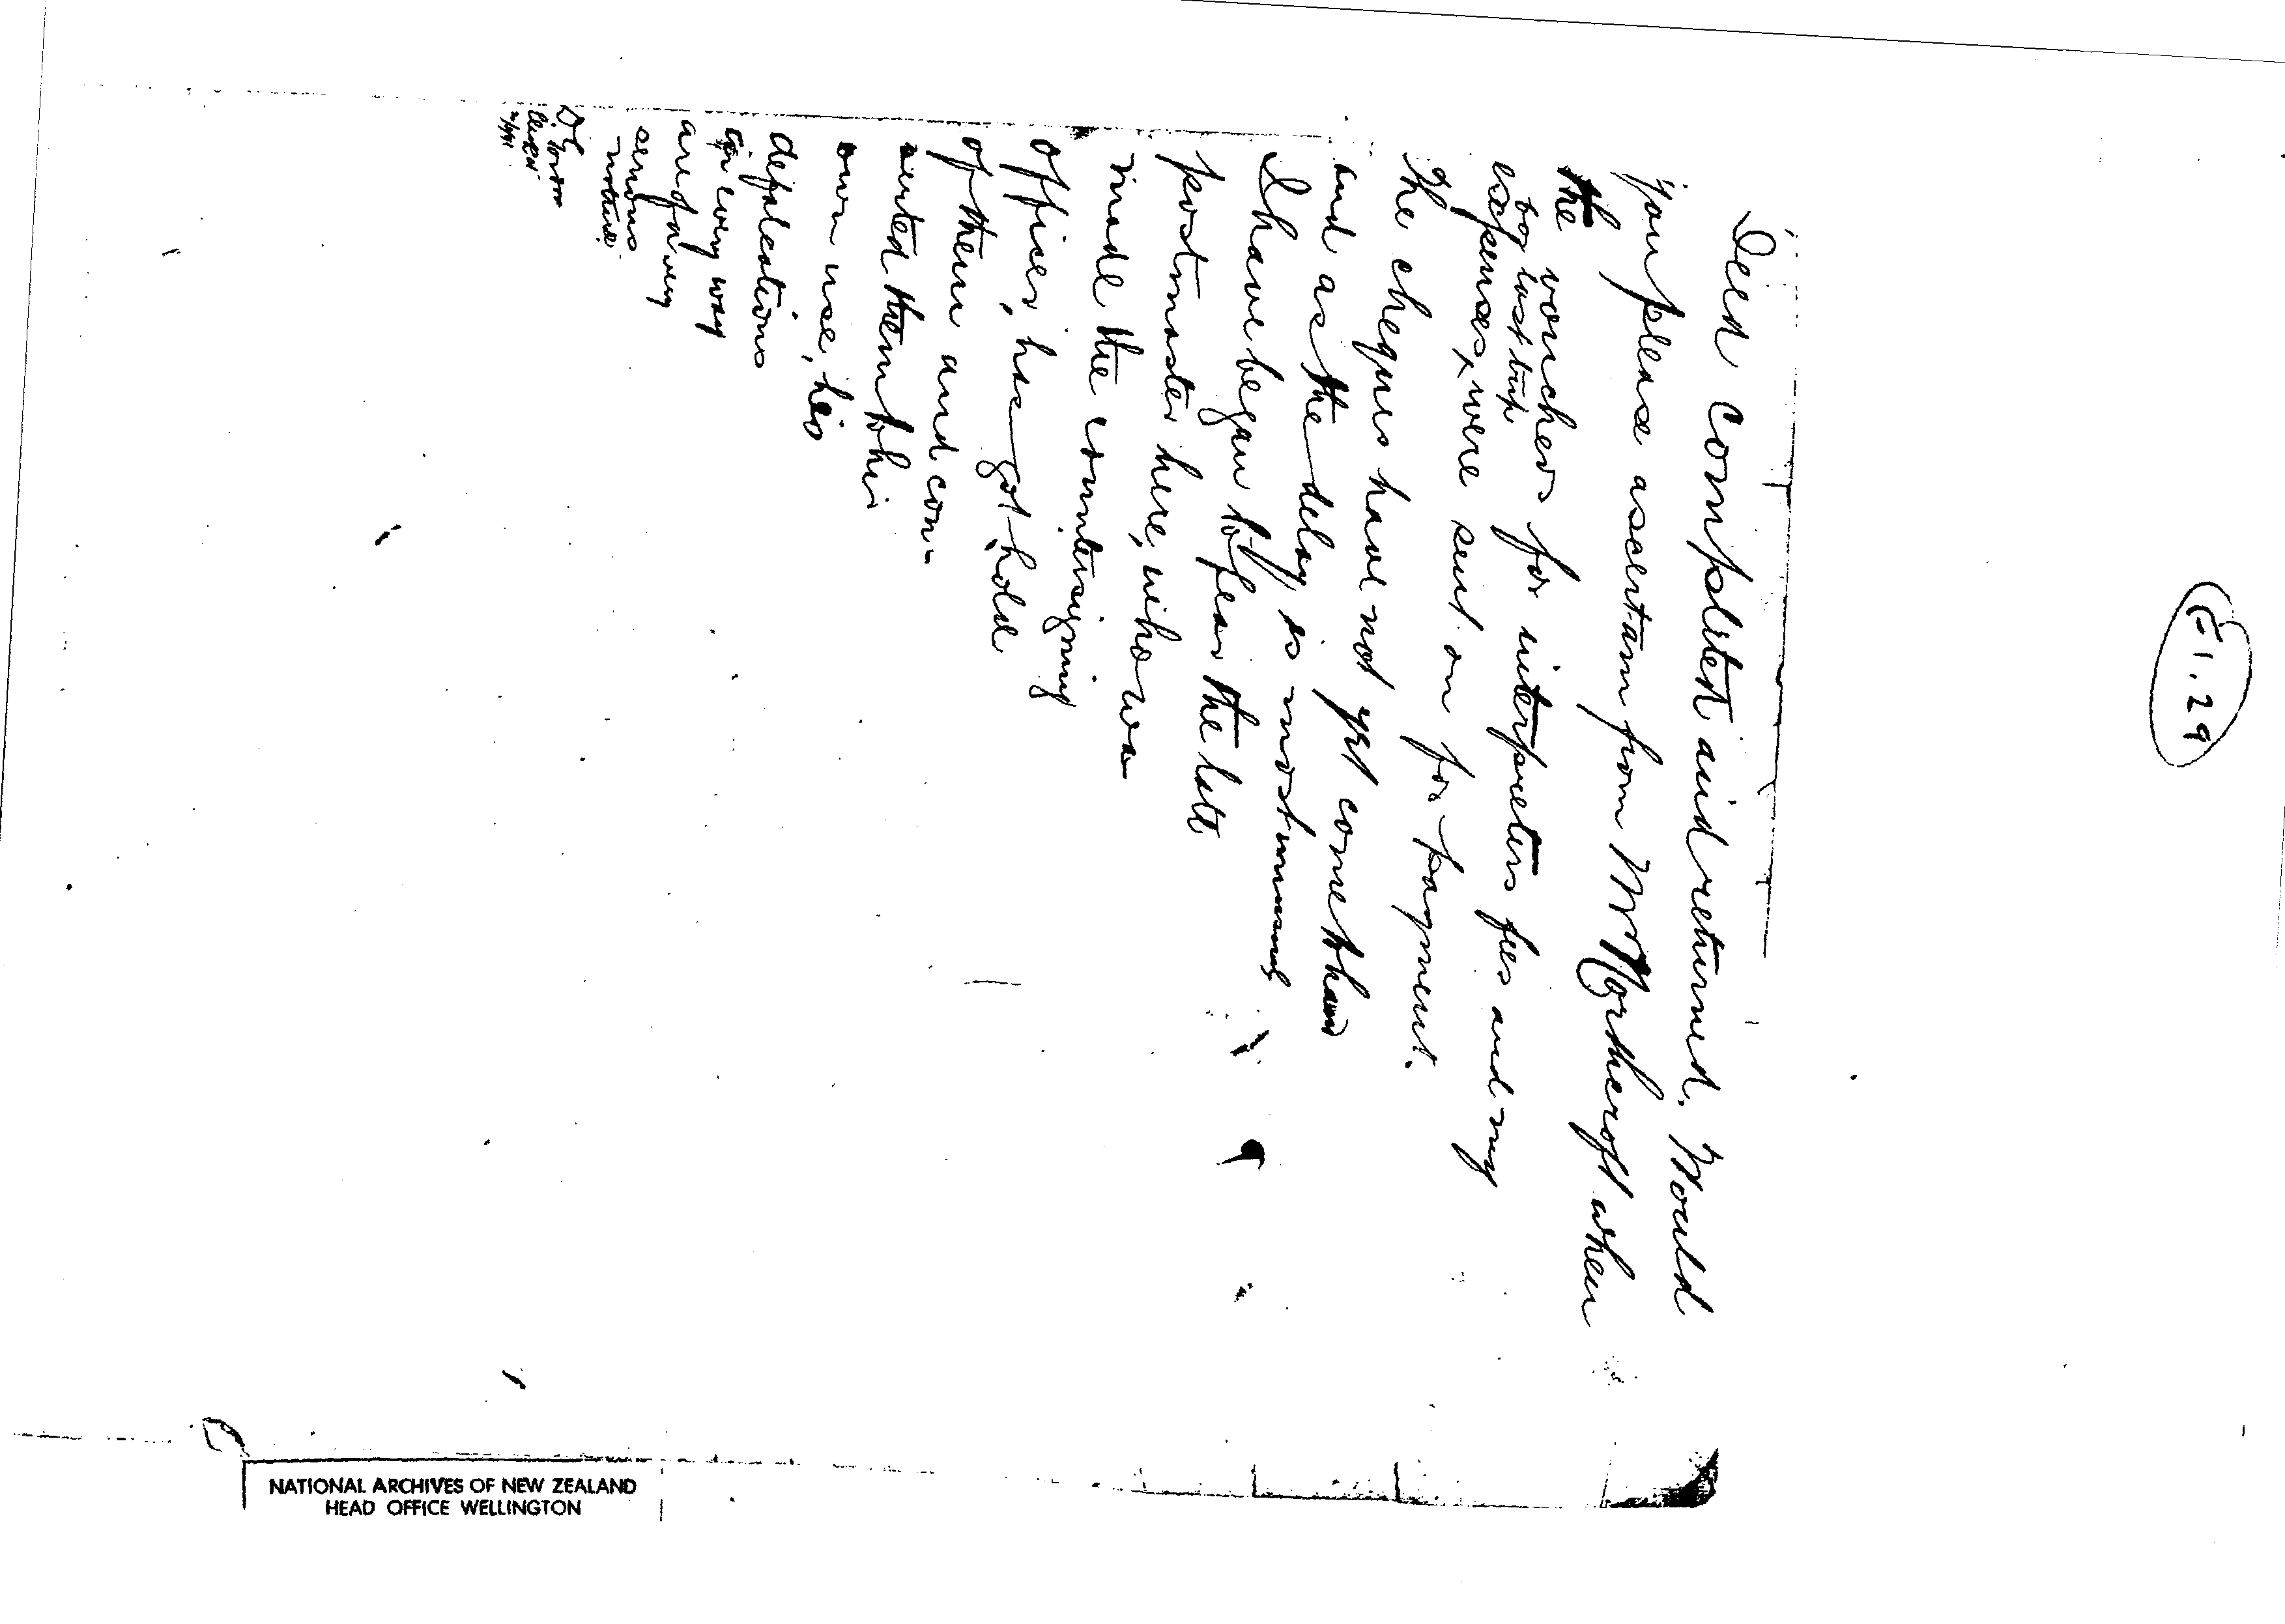 E1.29
Deed completed and returned. Would
you please ascertain from Mr Northcroft when
the vouchers for interpreters fees and my
expenses, for last trip, were sent on for payment.
The cheques have not yet come to hand
and as the delay is most unusual
I have began to fear the late
postmaster here, who was
made the countersigning
officer, has got hold
of them and con-
verted them to his
own use, his
defalcations
in every way
are of a very
serious
nature.
NATIONAL ARCHIVES OF NEW ZEALAND
HEAD OFFICE WELLINGTON